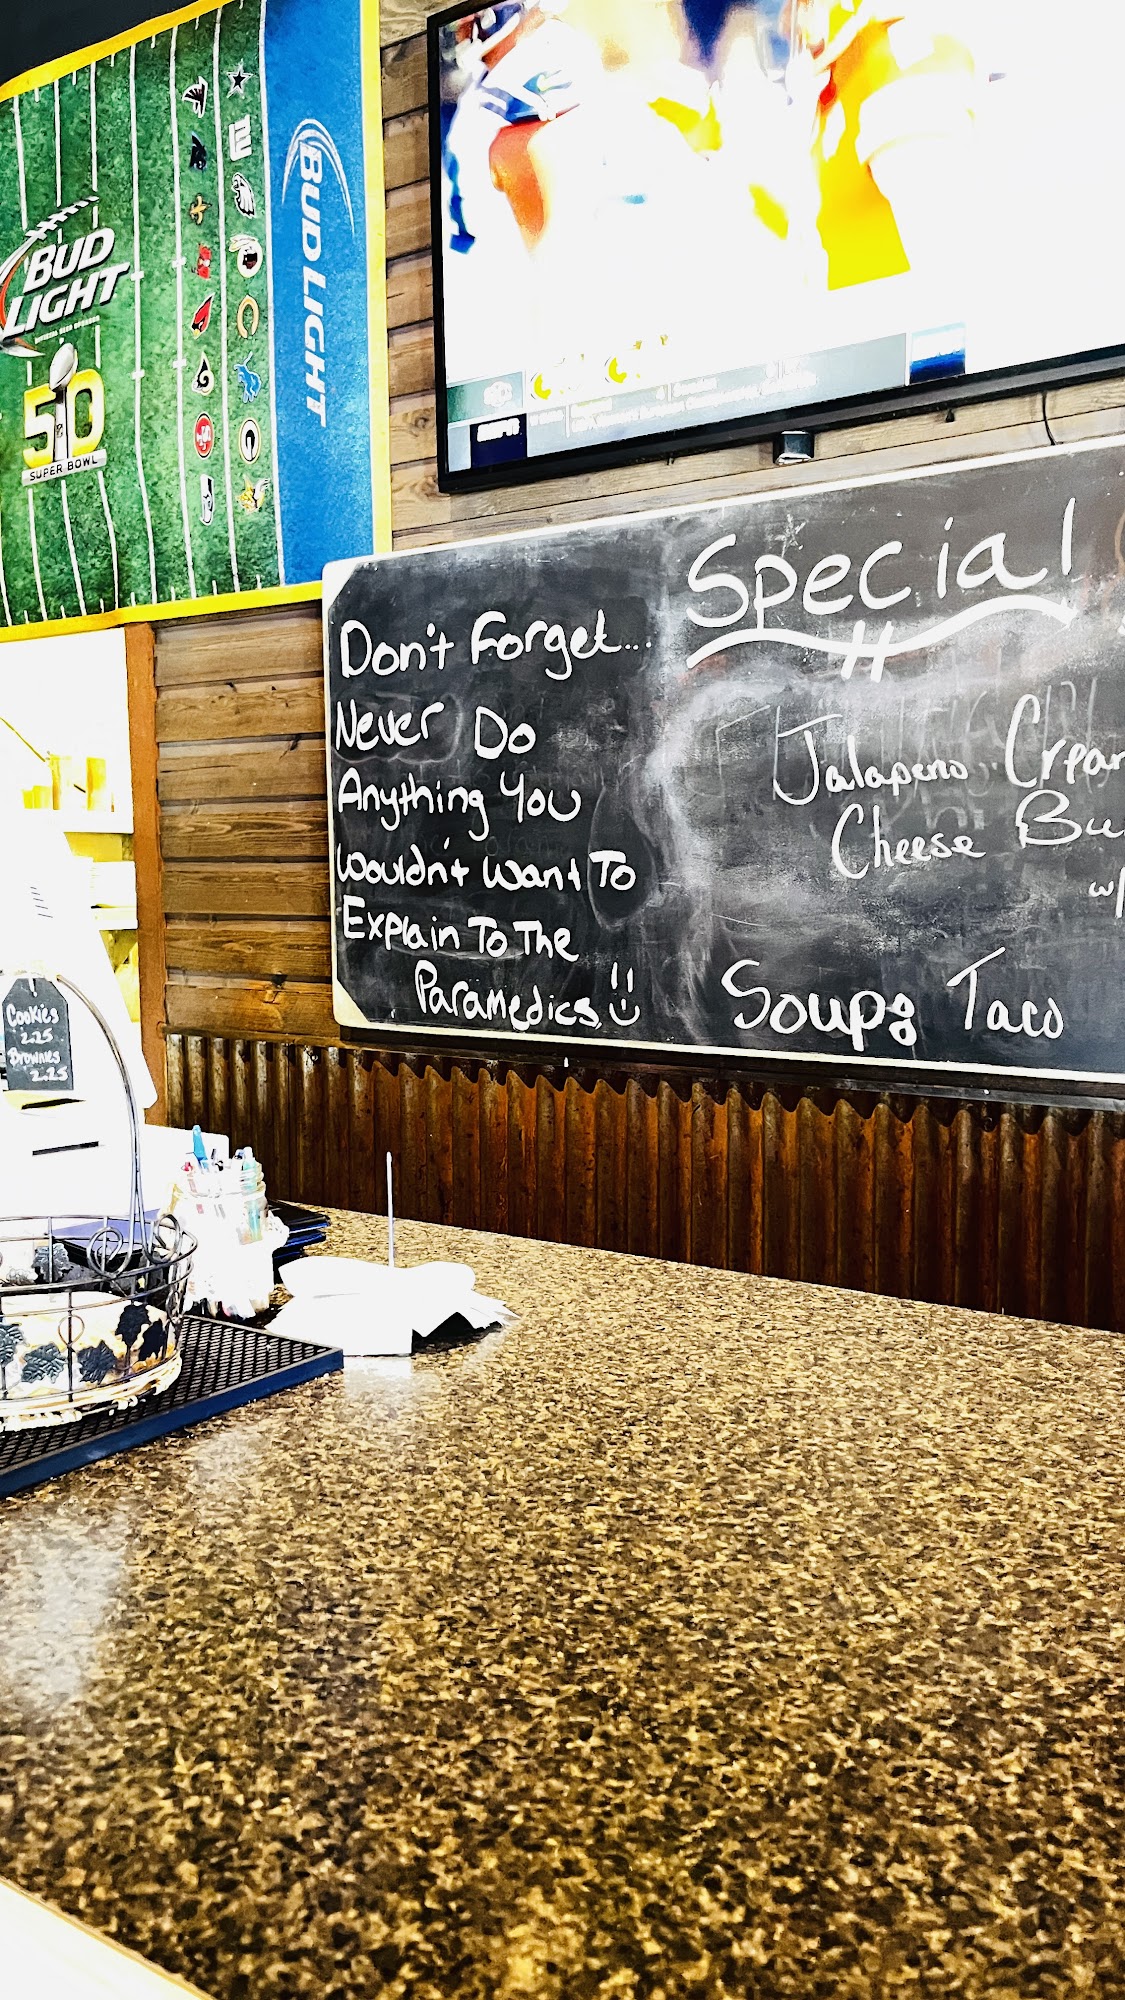 BUD LIGHT
BUD
LIGHT
50
SUPER BOWL
ESPN
Special
Don't Forget...
Never Do
Anything You
Wouldn't Want To
Explain To The
Paramedics.
Jalapeno
Cheese
w/
Soup: Taco
Cookies
2.25
Brownies
2.25